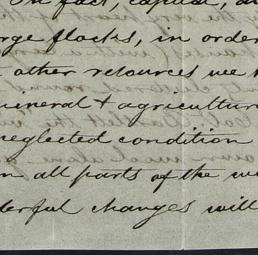 In fact, capital, a
rge flocks, in order
t other resources we h
mineral & agricultur
neglected condition
in all parts of the w
derful changes will